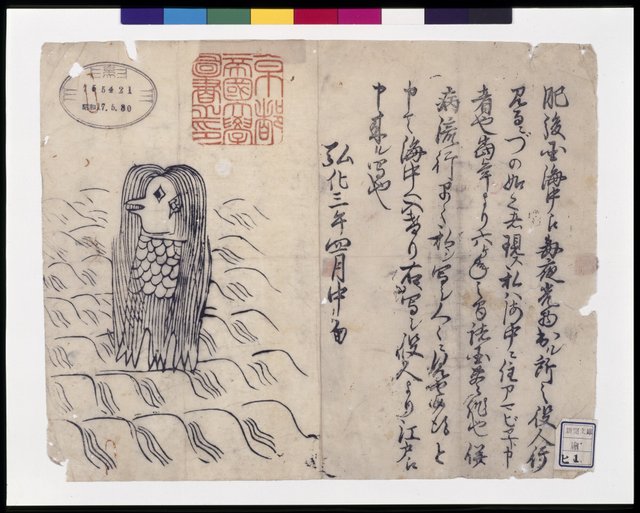 肥後国海中江毎夜光物出ル所之役人行
見るニづの如く者現ス私ハ海中ニ住アマビヱト申
者也当年より六ヶ年之間諸国豊作也併
病流行早々私シ写シ人々ニ見セ候得と
申て海中へ入けり右写シ役人より江戸江
申来ル写也
弘化三年四月中旬
京都
帝國大學
圖書之印
165421
昭和17.5.30
新聞文庫
ヒ 1